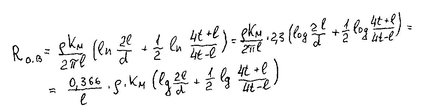 R о.в = ρ Kм / 2πl (ln 2l/d + 1/2 ln 4t+l/4t-l) = ρ Kм / 2πl · 2,3 (log 2l/d + 1/2 log 4t+l/4t-l) =
= 0,366/l · ρ · Kм (lg 2l/d + 1/2 lg 4t+l/4t-l)